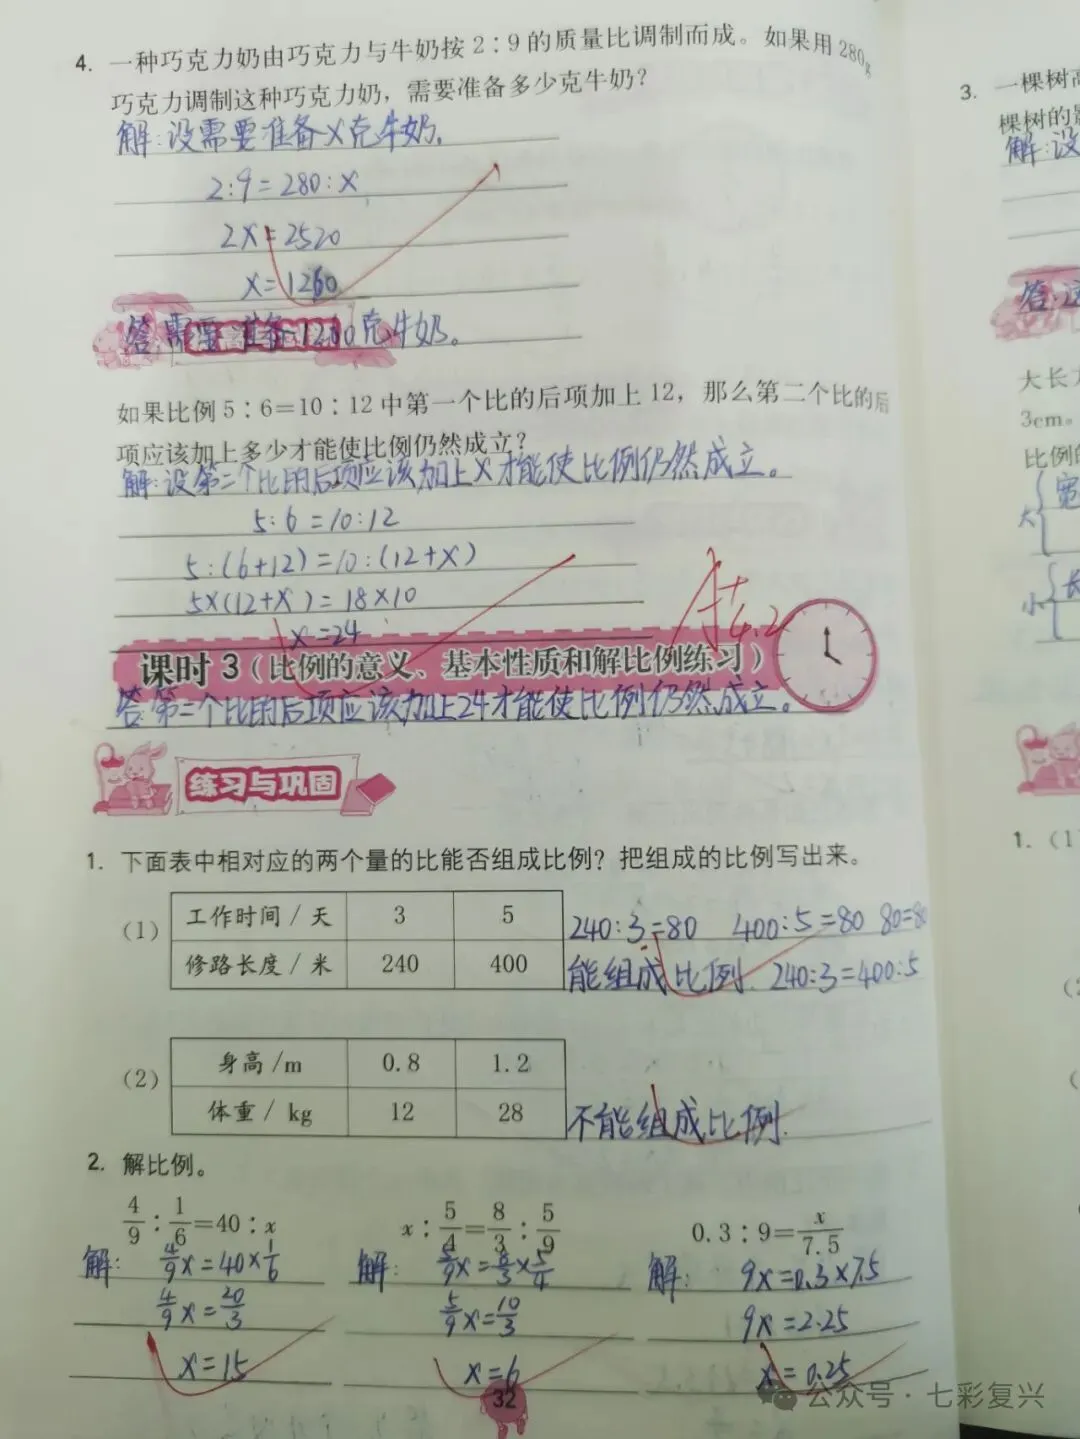 4. 一种巧克力奶由巧克力与牛奶按2∶9的质量比调制而成。如果用280g
巧克力调制这种巧克力奶，需要准备多少克牛奶？
解:设需要准备x克牛奶。
2:9=280:x
2x=2520
x=1260
答:需要准备1260克牛奶。
如果比例5∶6=10∶12中第一个比的后项加上12，那么第二个比的后
项应该加上多少才能使比例仍然成立？
解:设第二个比的后项应该加上x才能使比例仍然成立。
5:6=10:12
5:(6+12)=10:(12+x)
5×(12+x)=18×10
x=24
4.2
课时3（比例的意义、基本性质和解比例练习）
答:第二个比的后项应该加上24才能使比例仍然成立。
练习与巩固
1. 下面表中相对应的两个量的比能否组成比例？把组成的比例写出来。
（1） 工作时间/天 3 5 240:3=80 400:5=80 80=80
修路长度/米 240 400 能组成比例. 240:3=400:5
（2） 身高/m 0.8 1.2
体重/kg 12 28 不能组成比例.
2. 解比例。
4/9∶1/6=40∶x x∶5/4=8/3∶5/9 0.3∶9=x/7.5
解: 4/9x=40×1/6 解: 5/9x=8/3×5/4 解: 9x=0.3×7.5
4/9x=20/3 5/9x=10/3 9x=2.25
x=15 x=6 x=0.25
32
公众号·七彩复兴
3. 一棵树高
棵树的影
解:设
答:
大长方
3cm。
比例的
大 宽
小 长
1.（1